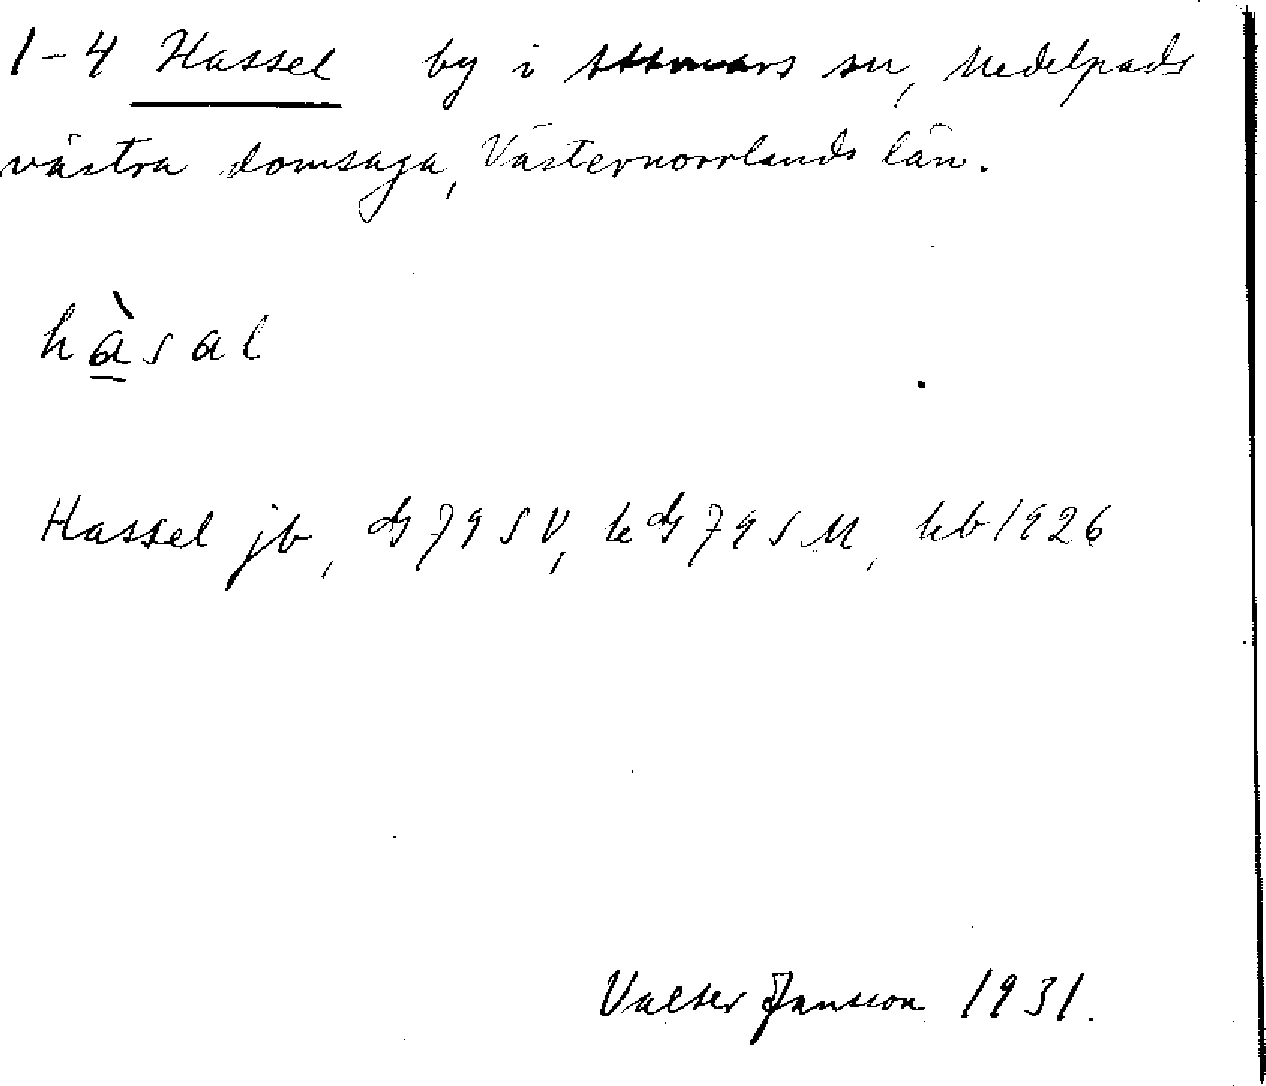 1-4 Hassel by i Attmars sn, Medelpads
västra domsaga, Västernorrlands län.
hàsal
Hassel jb, dg 79 SV, k dg 79 S M, kb 1926
Valter Jansson 1931.